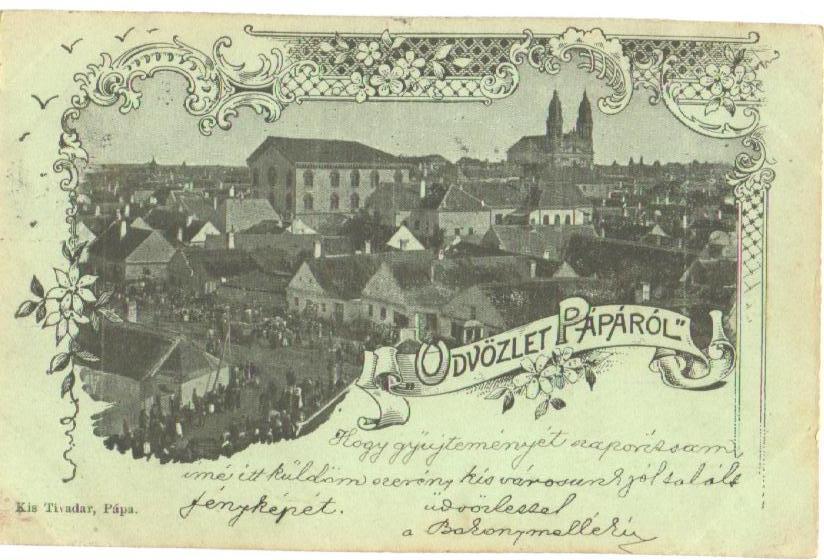 „ÜDVÖZLET PÁPÁRÓL"
Hogy gyüjteményét szaporitsam,
imé itt küldöm szerény kis városunk jól talált
fenyképét. üdvözlessel
a Bakonymelléki
Kis Tivadar, Pápa.